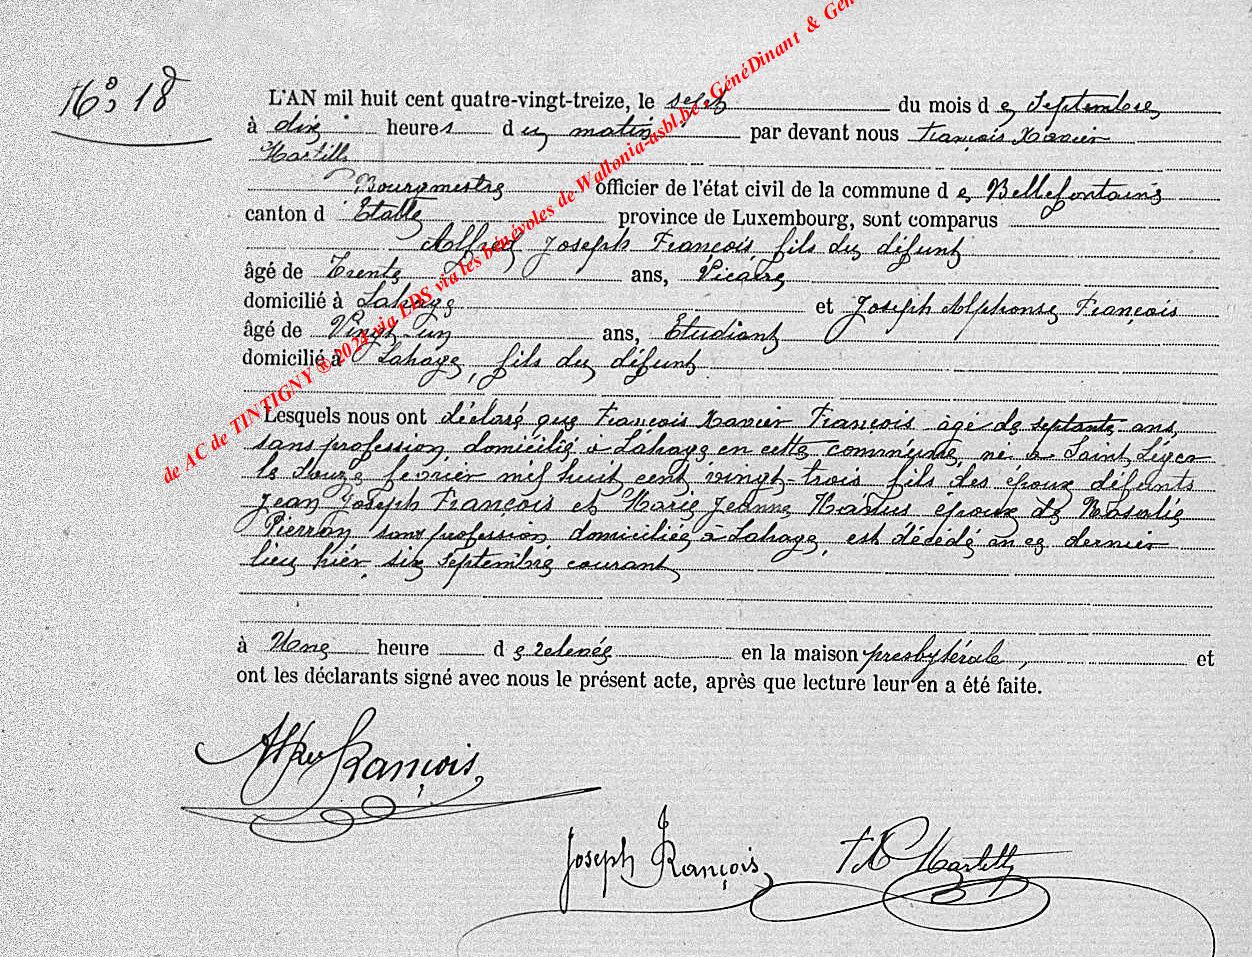 N° 18
L'AN mil huit cent quatre-vingt-treize, le sept du mois de Septembre
à dix heures du matin par devant nous François Xavier
Bourgmestre officier de l'état civil de la commune de Bellefontaine
canton d'Etalle province de Luxembourg, sont comparus
Alfred Joseph François, fils du défunt
âgé de Trente ans, Vicaire
domicilié à Lahage et Joseph Alphonse François
âgé de Vingt un ans, Etudiant
domicilié à Lahage, fils du défunt
Lesquels nous ont déclaré que François Xavier François âgé de septante ans,
sans profession, domicilié à Lahage en cette commune, né à Saint Léger
le douze février mil huit cent vingt-trois fils des époux défunts
Jean Joseph François et Marie Jeanne époux de Rosalie
Pierron sans profession domiciliée à Lahage, est décédé en ce dernier
lieu hier, six Septembre courant
à Une heure de relevée en la maison presbytérale, et
ont les déclarants signé avec nous le présent acte, après que lecture leur en a été faite.
François
Joseph François
de AC de TINTIGNY ® 2024 via LDS via les bénévoles de Wallonia-asbl.be - GénéDinant & Gén